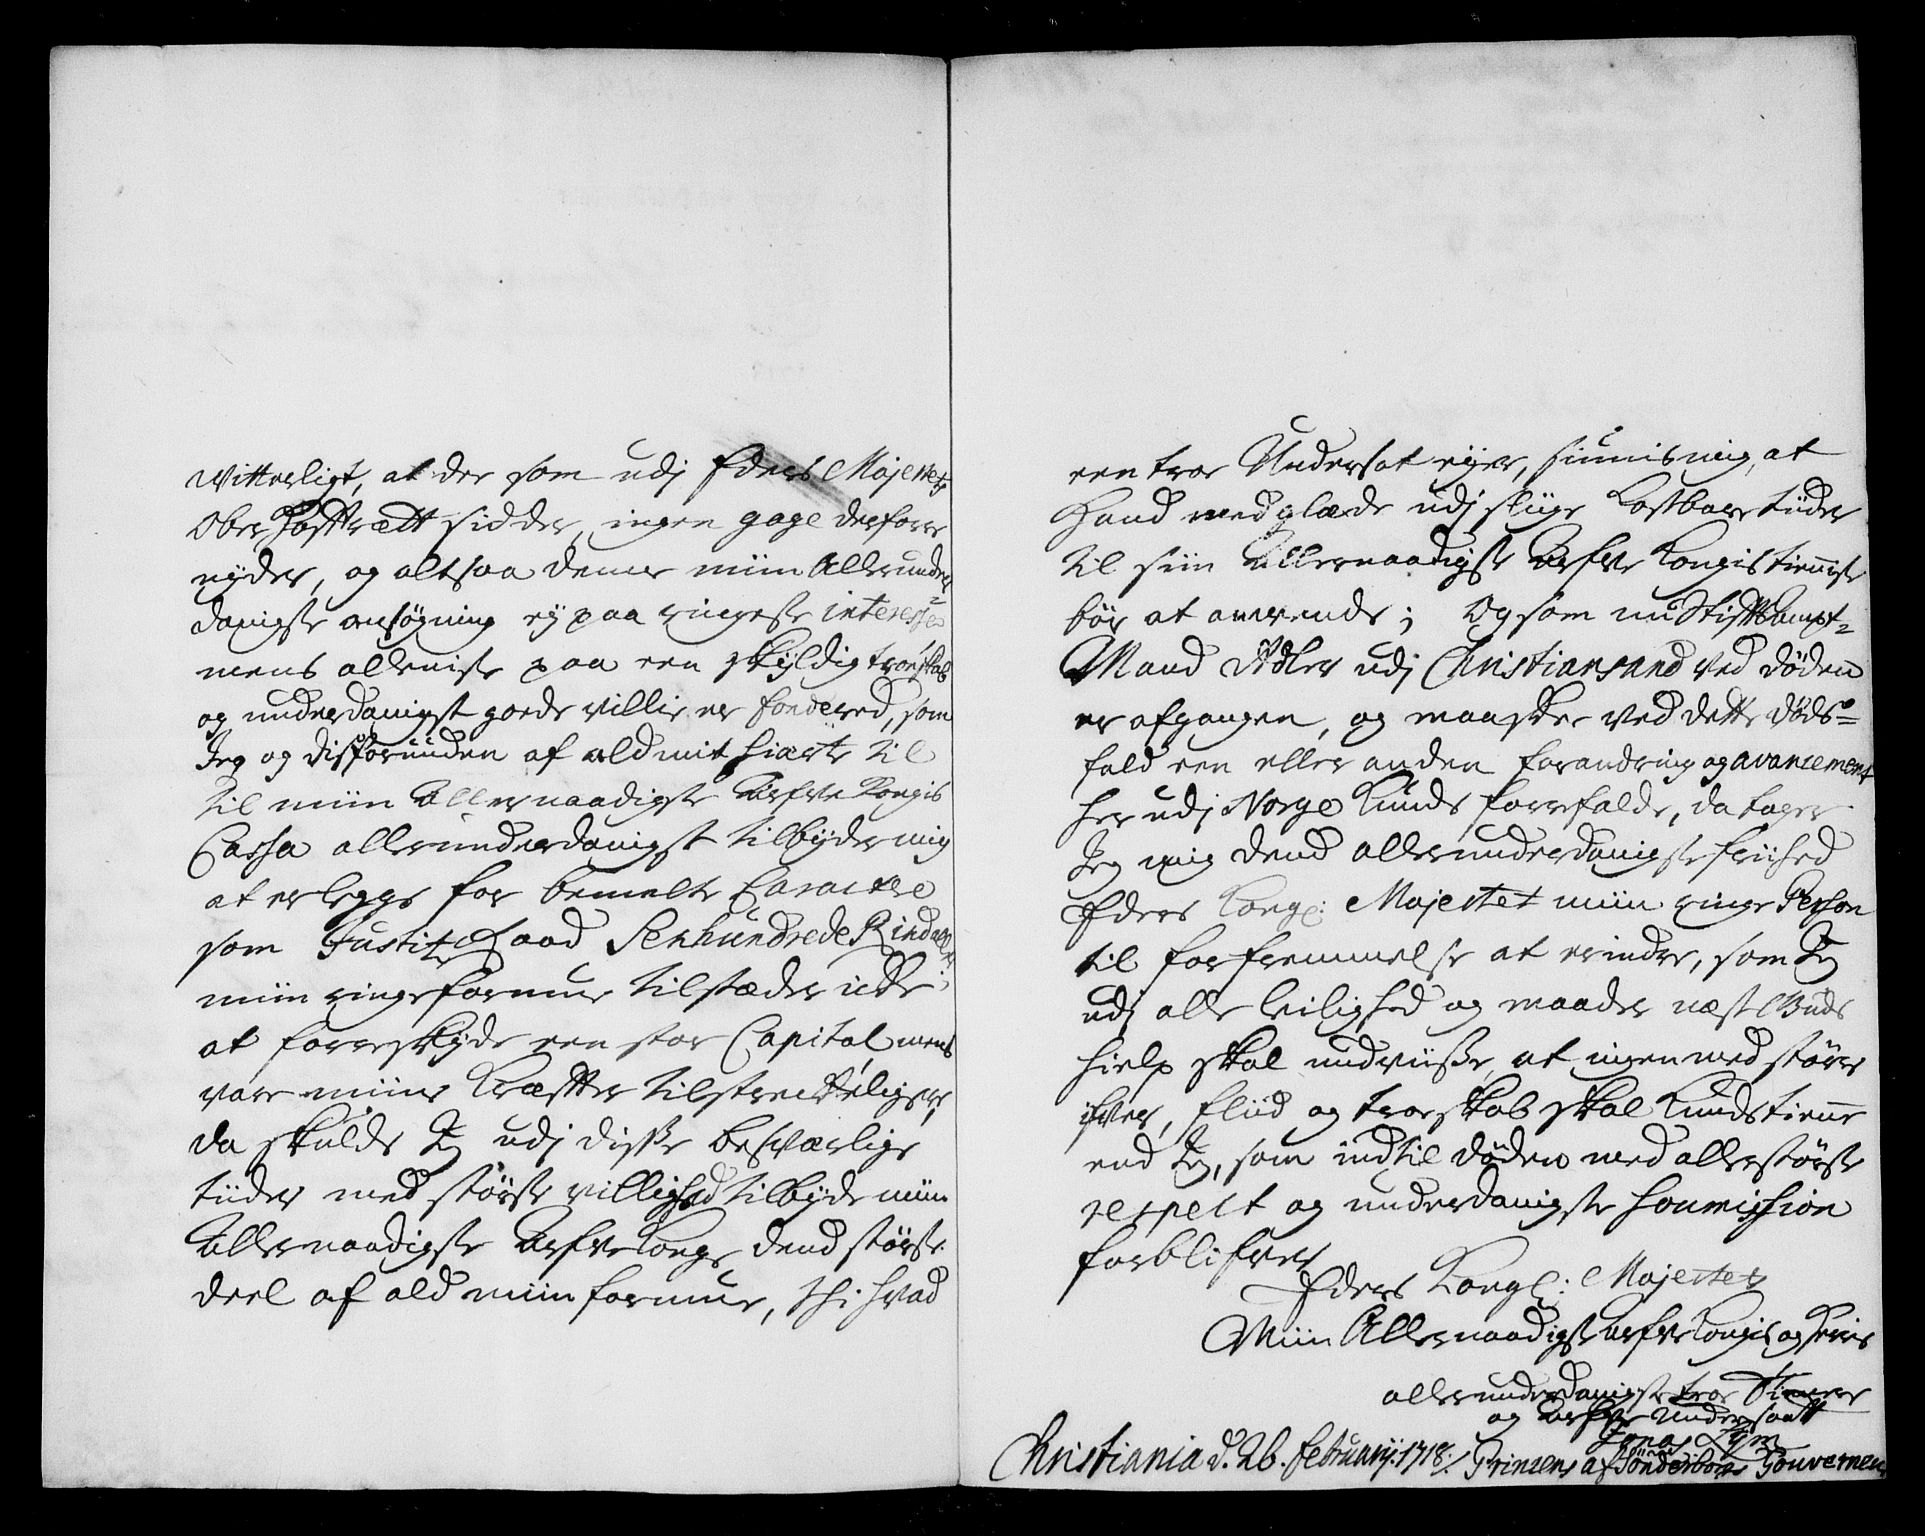 Witterligt, at der som udj Eders Majestets
Ober Hoffrett sidder, ingen gage derforre
nyder, og altsaa denne miin Allerunder
danigste ansøgning ej paa ringeste interesse
mens alleniste paa een skyldig troeskab
og underdanigst goede villie er fondered, som
Jeg og disforuüden af ald mit hiærte til
til miin Allernaadigste Arfve Kongis
Cassa allerunderdanigst tilbyder mig
at erlegge for bemelte Caractere
som Justitz Raad Sexhundrede Rixdaller
miin ringe formue tilstæder icke
at forreskyde een stor Capital, mens
vare miine Kræffter tilstreckeligere,
da skulde Jeg udj disse besværlige
tiider med største villighed tilbyde miin
Allernaadigste Arfve Konge, dend største
deel af ald miin formue, thi hvad
een troe Undersat eyer, siunis mig, at
Hand med glæde udj sliige Kostbare tiider
til siin Allernaadigste Arfve Kongis tieniste
bør at anvende; Og som nu Stiftsampt-
Mand Adler udj Christiansand ved døden
er afgangen, og maaskee ved dette døds-
fald een eller anden forandring og avancement
her udj Norge Kunde forrefalde, da tager
Jeg mig dend allerunderdanigste friihed
Eders Kongl: Majestet miin ringe Person
til forfremmelse at erindre, som Jeg
udj alle leilighed og maader næst Guds
hielp skal udviisse, at ingen med større
ifver, fliid og troeskab skal Kunde tienne
end Jeg, som indtil døden med allerstørste
respect og underdanigste soumission
forblifver
Eders Kongl: Majestets
Miin Allernaadigste Arfve Kongis og Herris
allerunderdanigste troe tienere
og Arfve Undersaatt
Jonas Lÿm
Christiania d. 26. februarij: 1718:/ Prinzens af Sønderborgs Gouverneur